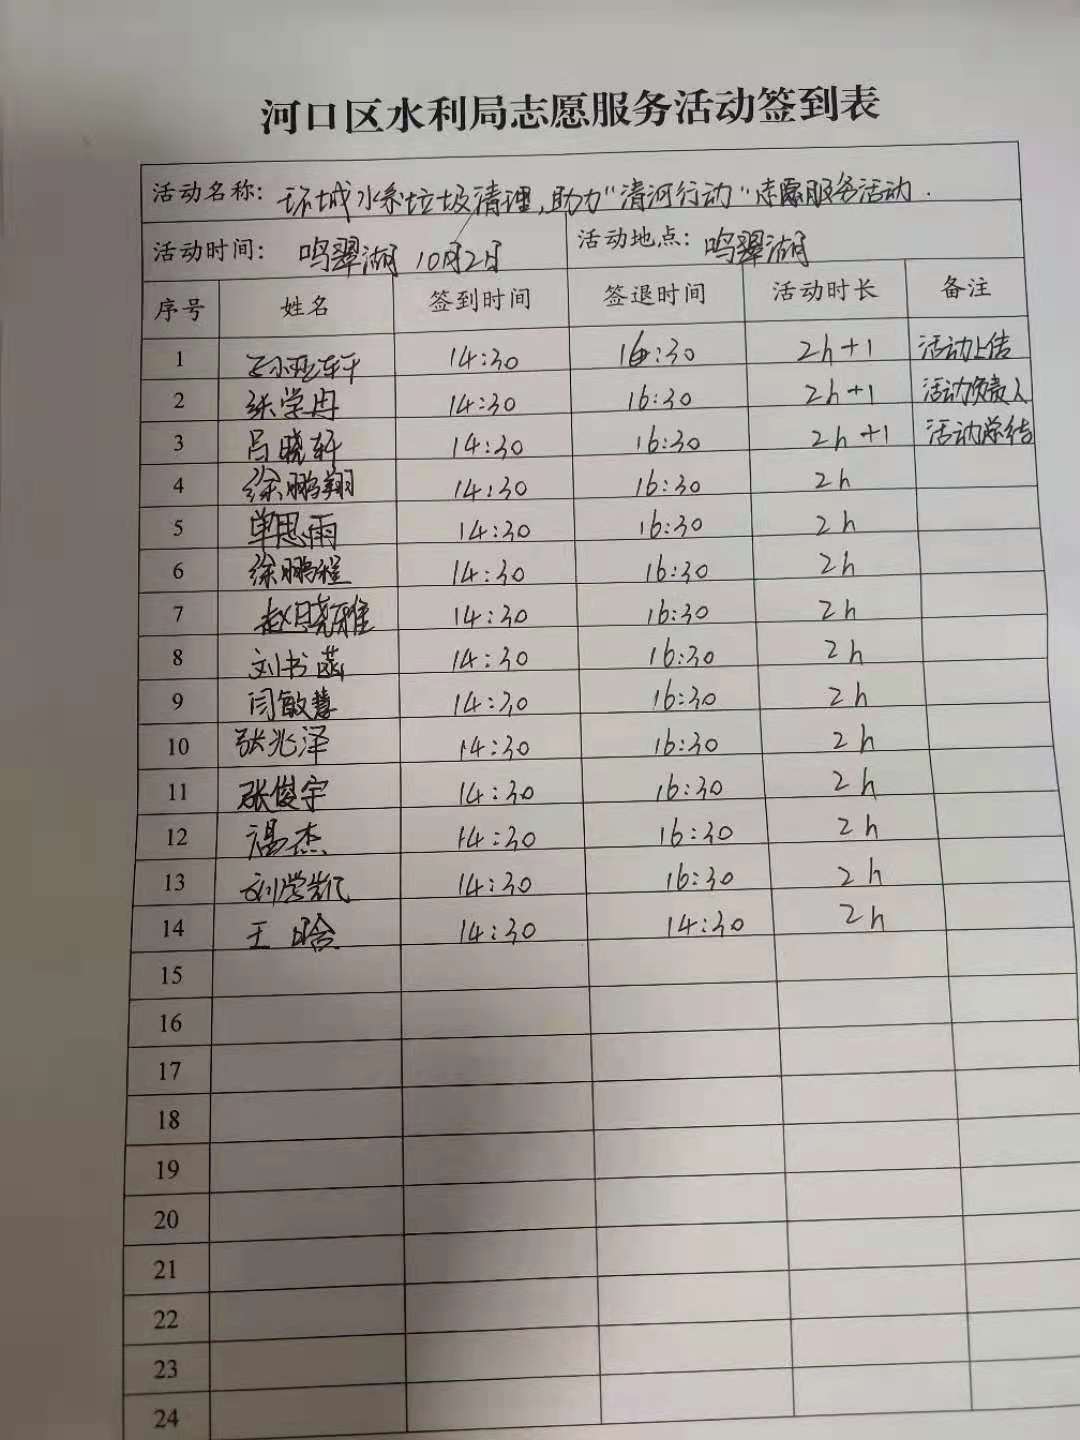 河口区水利局志愿服务活动签到表
活动名称: 环城水系垃圾清理,助力"清河行动"志愿服务活动.
活动时间: 鸣翠湖 10月2日 活动地点: 鸣翠湖
序号 姓名 签到时间 签退时间 活动时长 备注
1 14:30 16:30 2h+1 活动上传
2 张学冉 14:30 16:30 2h+1 活动负责人
3 吕晓轩 14:30 16:30 2h+1 活动总结
4 徐鹏翔 14:30 16:30 2h
5 单思雨 14:30 16:30 2h
6 徐鹏程 14:30 16:30 2h
7 赵晓雅 14:30 16:30 2h
8 刘书菡 14:30 16:30 2h
9 闫敏慧 14:30 16:30 2h
10 张兆泽 14:30 16:30 2h
11 张俊宇 14:30 16:30 2h
12 温杰 14:30 16:30 2h
13 刘学凯 14:30 16:30 2h
14 王晗 14:30 14:30 2h
15
16
17
18
19
20
21
22
23
24